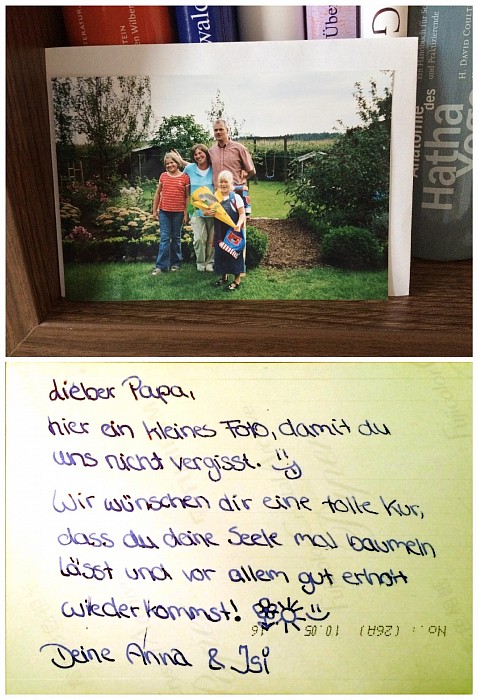 LITERATUR
Wilber
wald
Über
G
H. DAVID COULT
Anatomie
des
Hatha
Yoga
lieber Papa,
hier ein kleines Foto, damit du
uns nicht vergisst.
Wir wünschen dir eine tolle Kur,
dass du deine Seele mal baumeln
lässt und vor allem gut erholt
wiederkommst!
No.: (26A) 10.05 16
Deine Anna & Isi